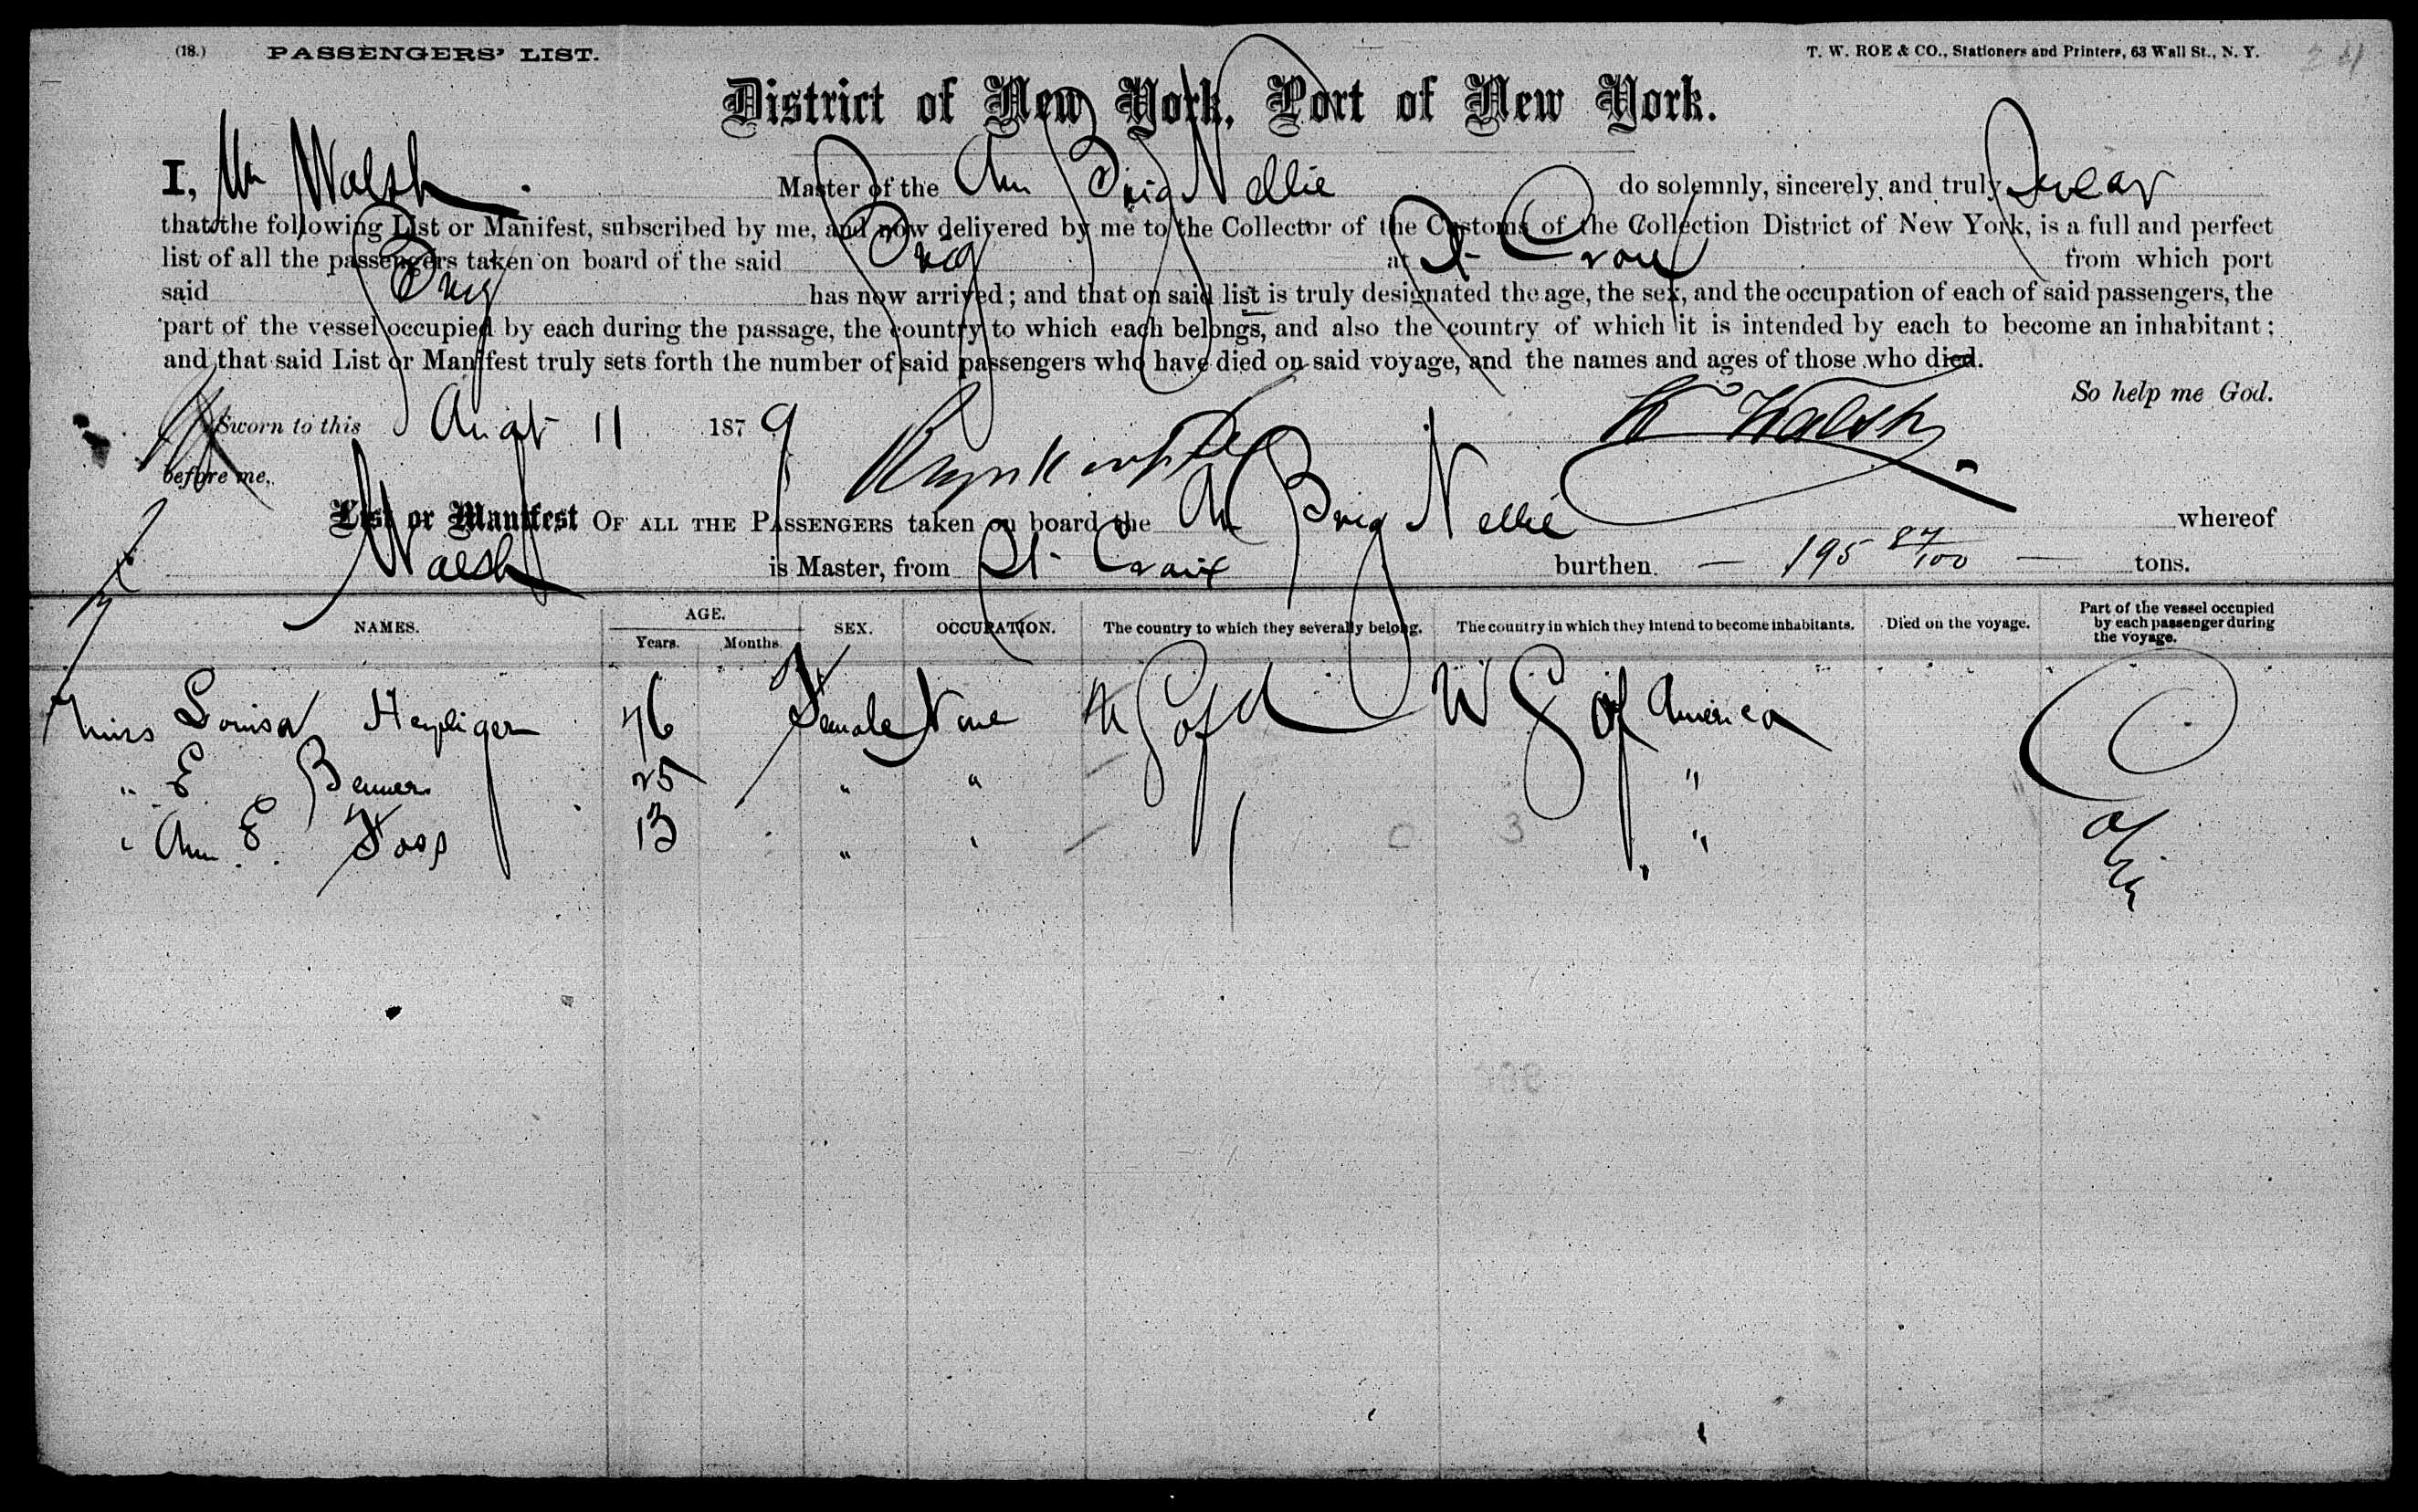 (18.) PASSENGERS' LIST. T. W. ROE & CO., Stationers and Printers, 63 Wall St., N. Y.
District of New York, Port of New York.
I, Wm Walsh Master of the Am Brig Nellie do solemnly, sincerely and truly Swear
that the following List or Manifest, subscribed by me, and now delivered by me to the Collector of the Customs of the Collection District of New York, is a full and perfect
list of all the passengers taken on board of the said Brig at St Croix from which port
said Brig has now arrived; and that on said list is truly designated the age, the sex, and the occupation of each of said passengers, the
part of the vessel occupied by each during the passage, the country to which each belongs, and also the country of which it is intended by each to become an inhabitant;
and that said List or Manifest truly sets forth the number of said passengers who have died on said voyage, and the names and ages of those who died.
So help me God.
Sworn to this Augt 11 1879 Wm Walsh
before me,
List or Manifest OF ALL THE PASSENGERS taken on board the Am Brig Nellie whereof
Walsh is Master, from St Croix burthen 195 87/100 tons.
NAMES. AGE. Years. Months. SEX. OCCUPATION. The country to which they severally belong. The country in which they intend to become inhabitants. Died on the voyage. Part of the vessel occupied by each passenger during the voyage.
Miss Louisa Heyliger 76 Female None U S of A U S of America
" E Benners 25 " " "
" Ann E. Foss 13 " " "